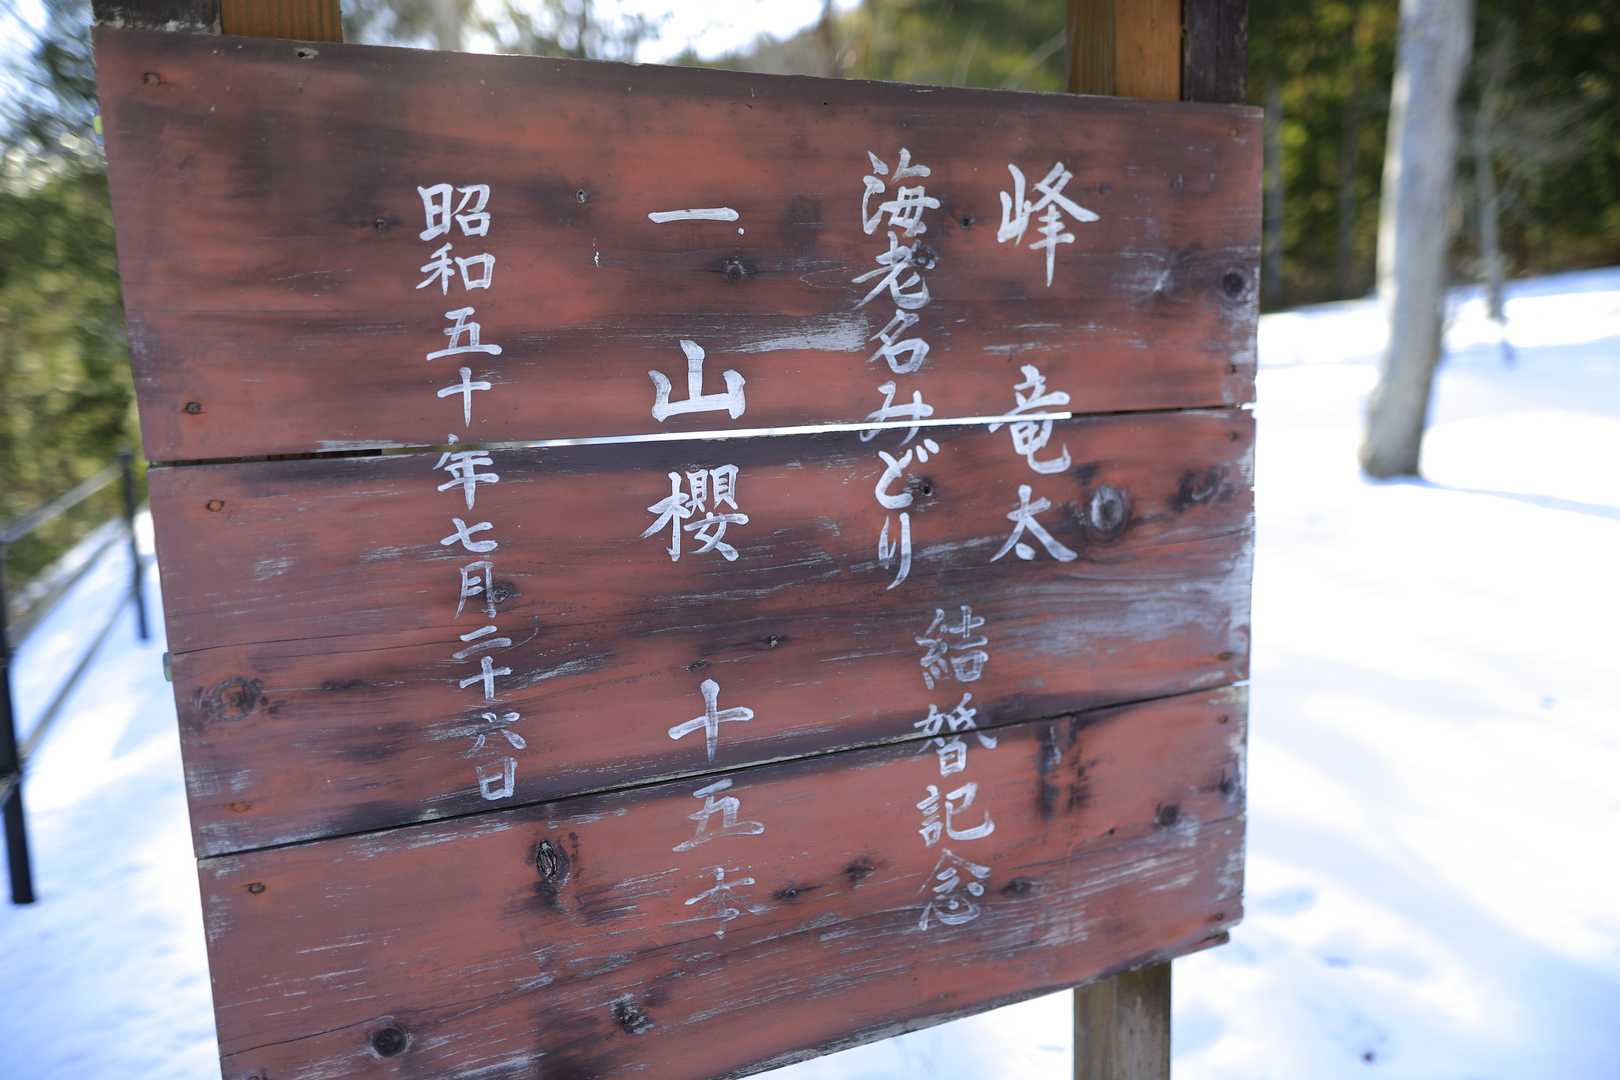 峰竜太
海老名みどり
結婚記念
一山櫻十五本
昭和五十年七月二十六日